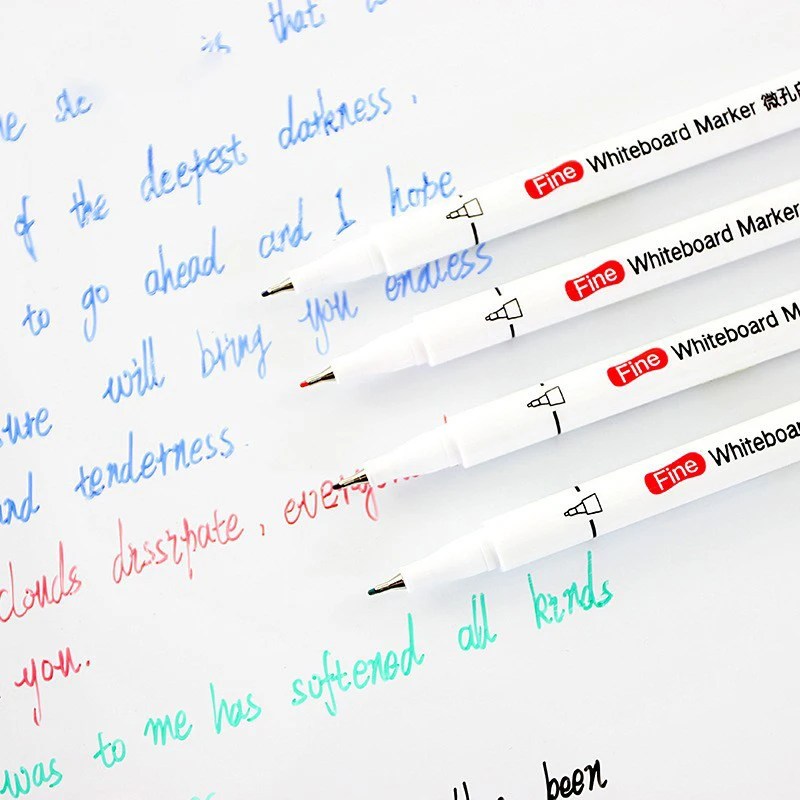 is that
the
of the deepest darkness.
to go ahead and I hope
sure will bring you endless
and tenderness.
clouds dissipate, everyone
you.
was to me has softened all kinds
been
Fine Whiteboard Marker 微孔
Fine Whiteboard Marker
Fine Whiteboard M
Fine Whiteboar